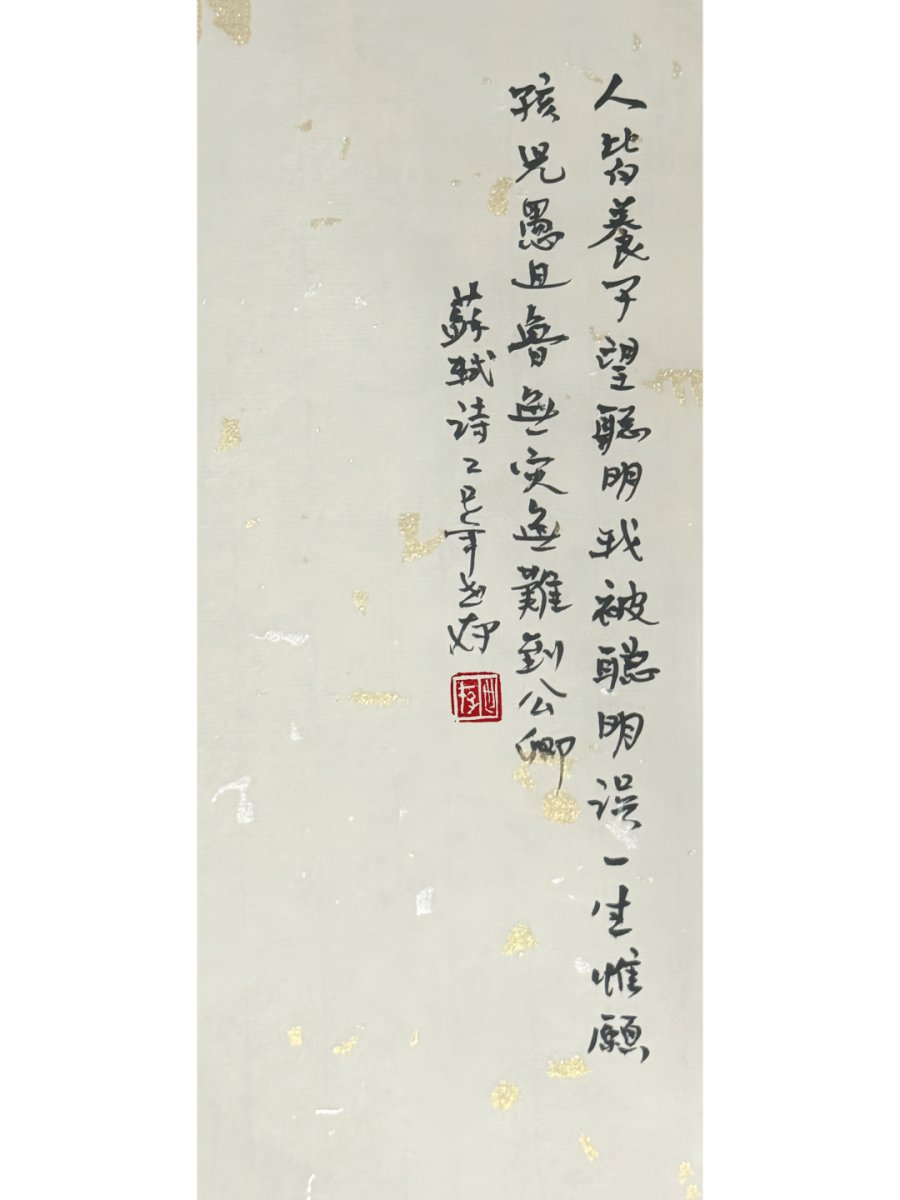 人皆養子望聰明我被聰明誤一生惟願
孩兒愚且魯無災無難到公卿
蘇軾詩乙巳年